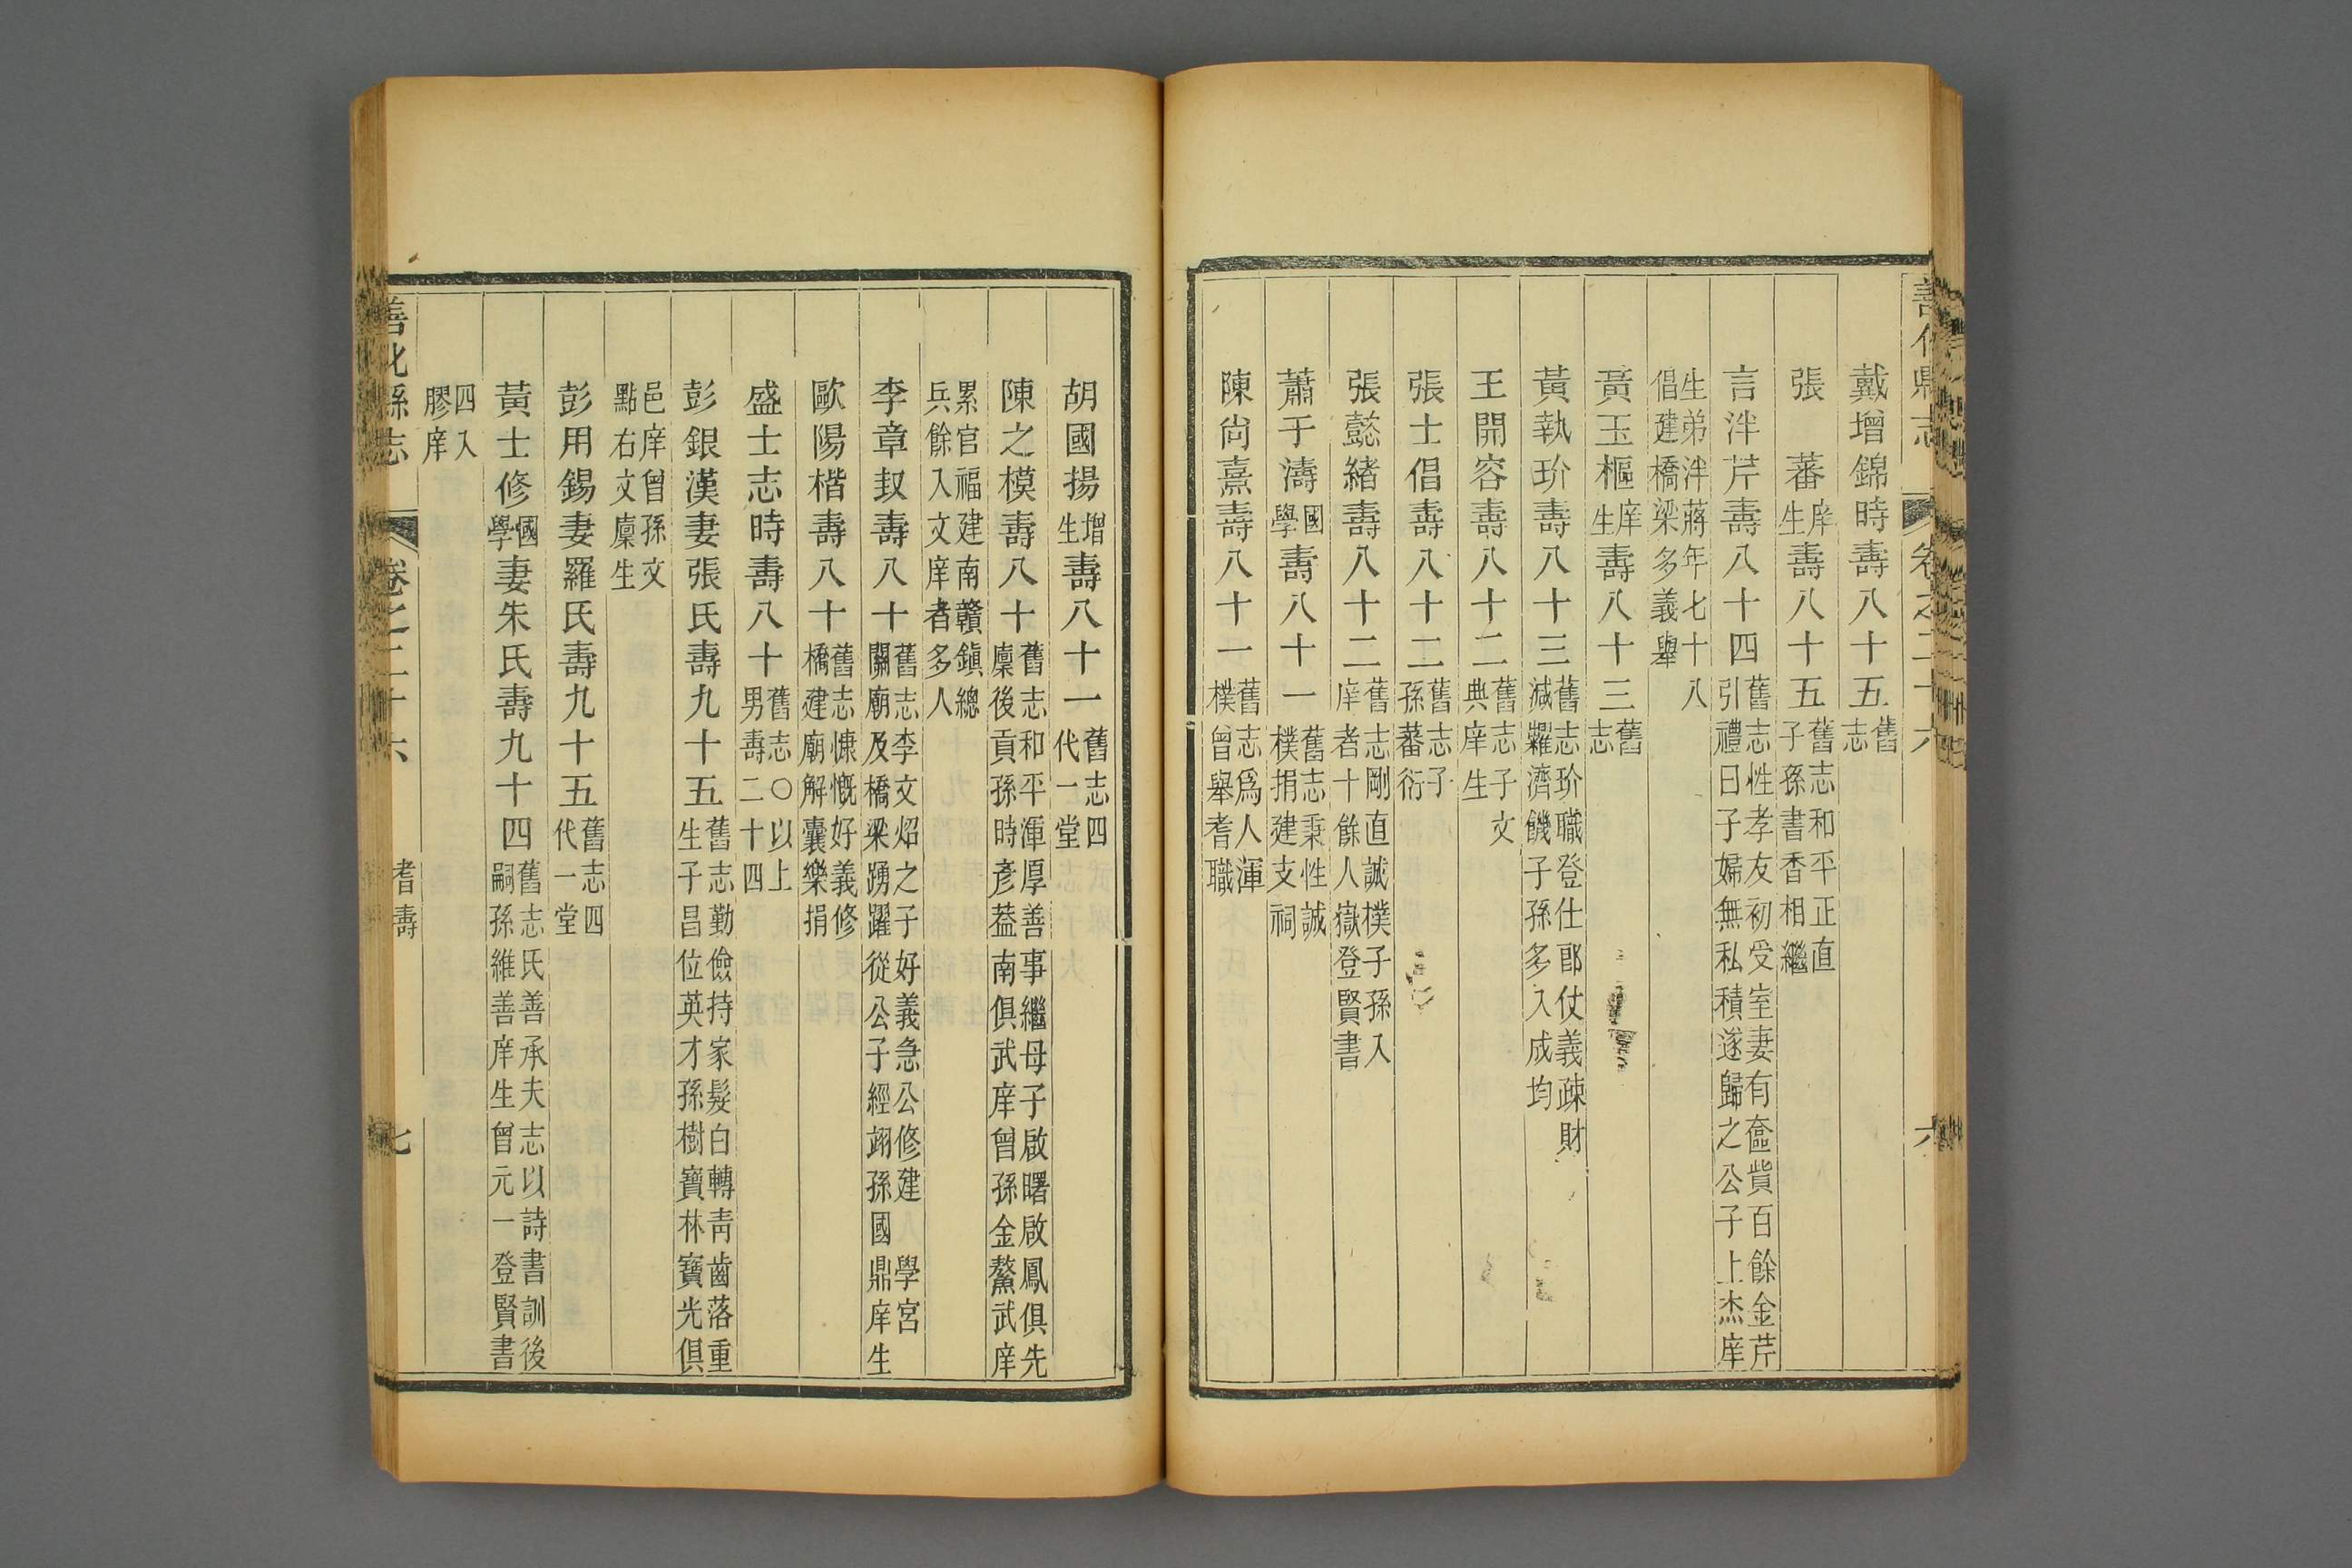 善化縣志
卷之二十六
六
戴增錦時壽八十五舊志
張　蕃庠生壽八十五舊志和平正直子孫書香相繼
言泮芹壽八十四舊志性孝友初受室妻有奩貲百餘金芹引禮曰子婦無私積遂歸之公子上杰庠
生弟泮蔣年七十八倡建橋梁多義舉
黃玉樞庠生壽八十三舊志
黃執玠壽八十三舊志玠職登仕郎仗義疎財減糶濟饑子孫多入成均
王開容壽八十二舊志子文典庠生
張士倡壽八十二舊志子孫蕃衍
張懿緒壽八十二舊志剛直誠樸子孫入庠者十餘人嶽登賢書
蕭于濤國學壽八十一舊志秉性誠樸捐建支祠
陳尙熹壽八十一舊志爲人渾樸曾舉耆職
胡國揚增生壽八十一舊志四代一堂
陳之模壽八十舊志和平渾厚善事繼母子啟曙啟鳳俱先廩後貢孫時彥葢南俱武庠曾孫金鰲武庠
累官福建南贛鎭總兵餘入文庠者多人
李章䚮壽八十舊志李文炤之子好義急公修建學宮關廟及橋梁踴躍從公子經翊孫國鼎庠生
歐陽楷壽八十舊志慷慨好義修橋建廟解囊樂捐
盛士志時壽八十舊志〇以上男壽二十四
彭銀漢妻張氏壽九十五舊志勤儉持家髮白轉靑齒落重生子昌位英才孫樹寶林寶光俱
邑庠曾孫文點右文廩生
彭用錫妻羅氏壽九十五舊志四代一堂
黃士修國學妻朱氏壽九十四舊志氏善承夫志以詩書訓後嗣孫維善庠生曾元一登賢書
四入膠庠
善化縣志
卷之二十六
耆壽
七